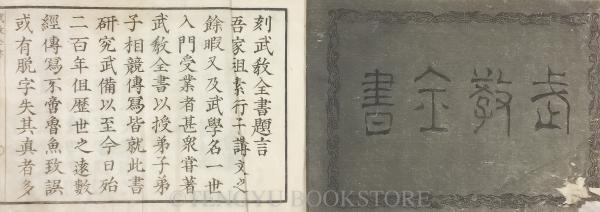 武教全書
刻武教全書題言
吾家祖素行于講文之
餘暇又及武學名一世
入門受業者甚衆甞著
武教全書以授弟子弟
子相競傳寫皆就此書
研究武備以至今日殆
二百年但歴世之遠數
經傳寫不啻魯魚致誤
或有脱字失其真者多
© TENGYU BOOKSTORE